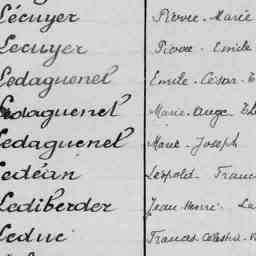 Lécuyer Pierre - Marie
Lecuyer Pierre - Emile
Ledaguenel Emile - César - E
Ledaguenel Marie - Ange
Ledaguenel Marie - Joseph
Ledéan Léopold - Franc
Lediberder Jean Henri - Le
Leduc Francis Célestin